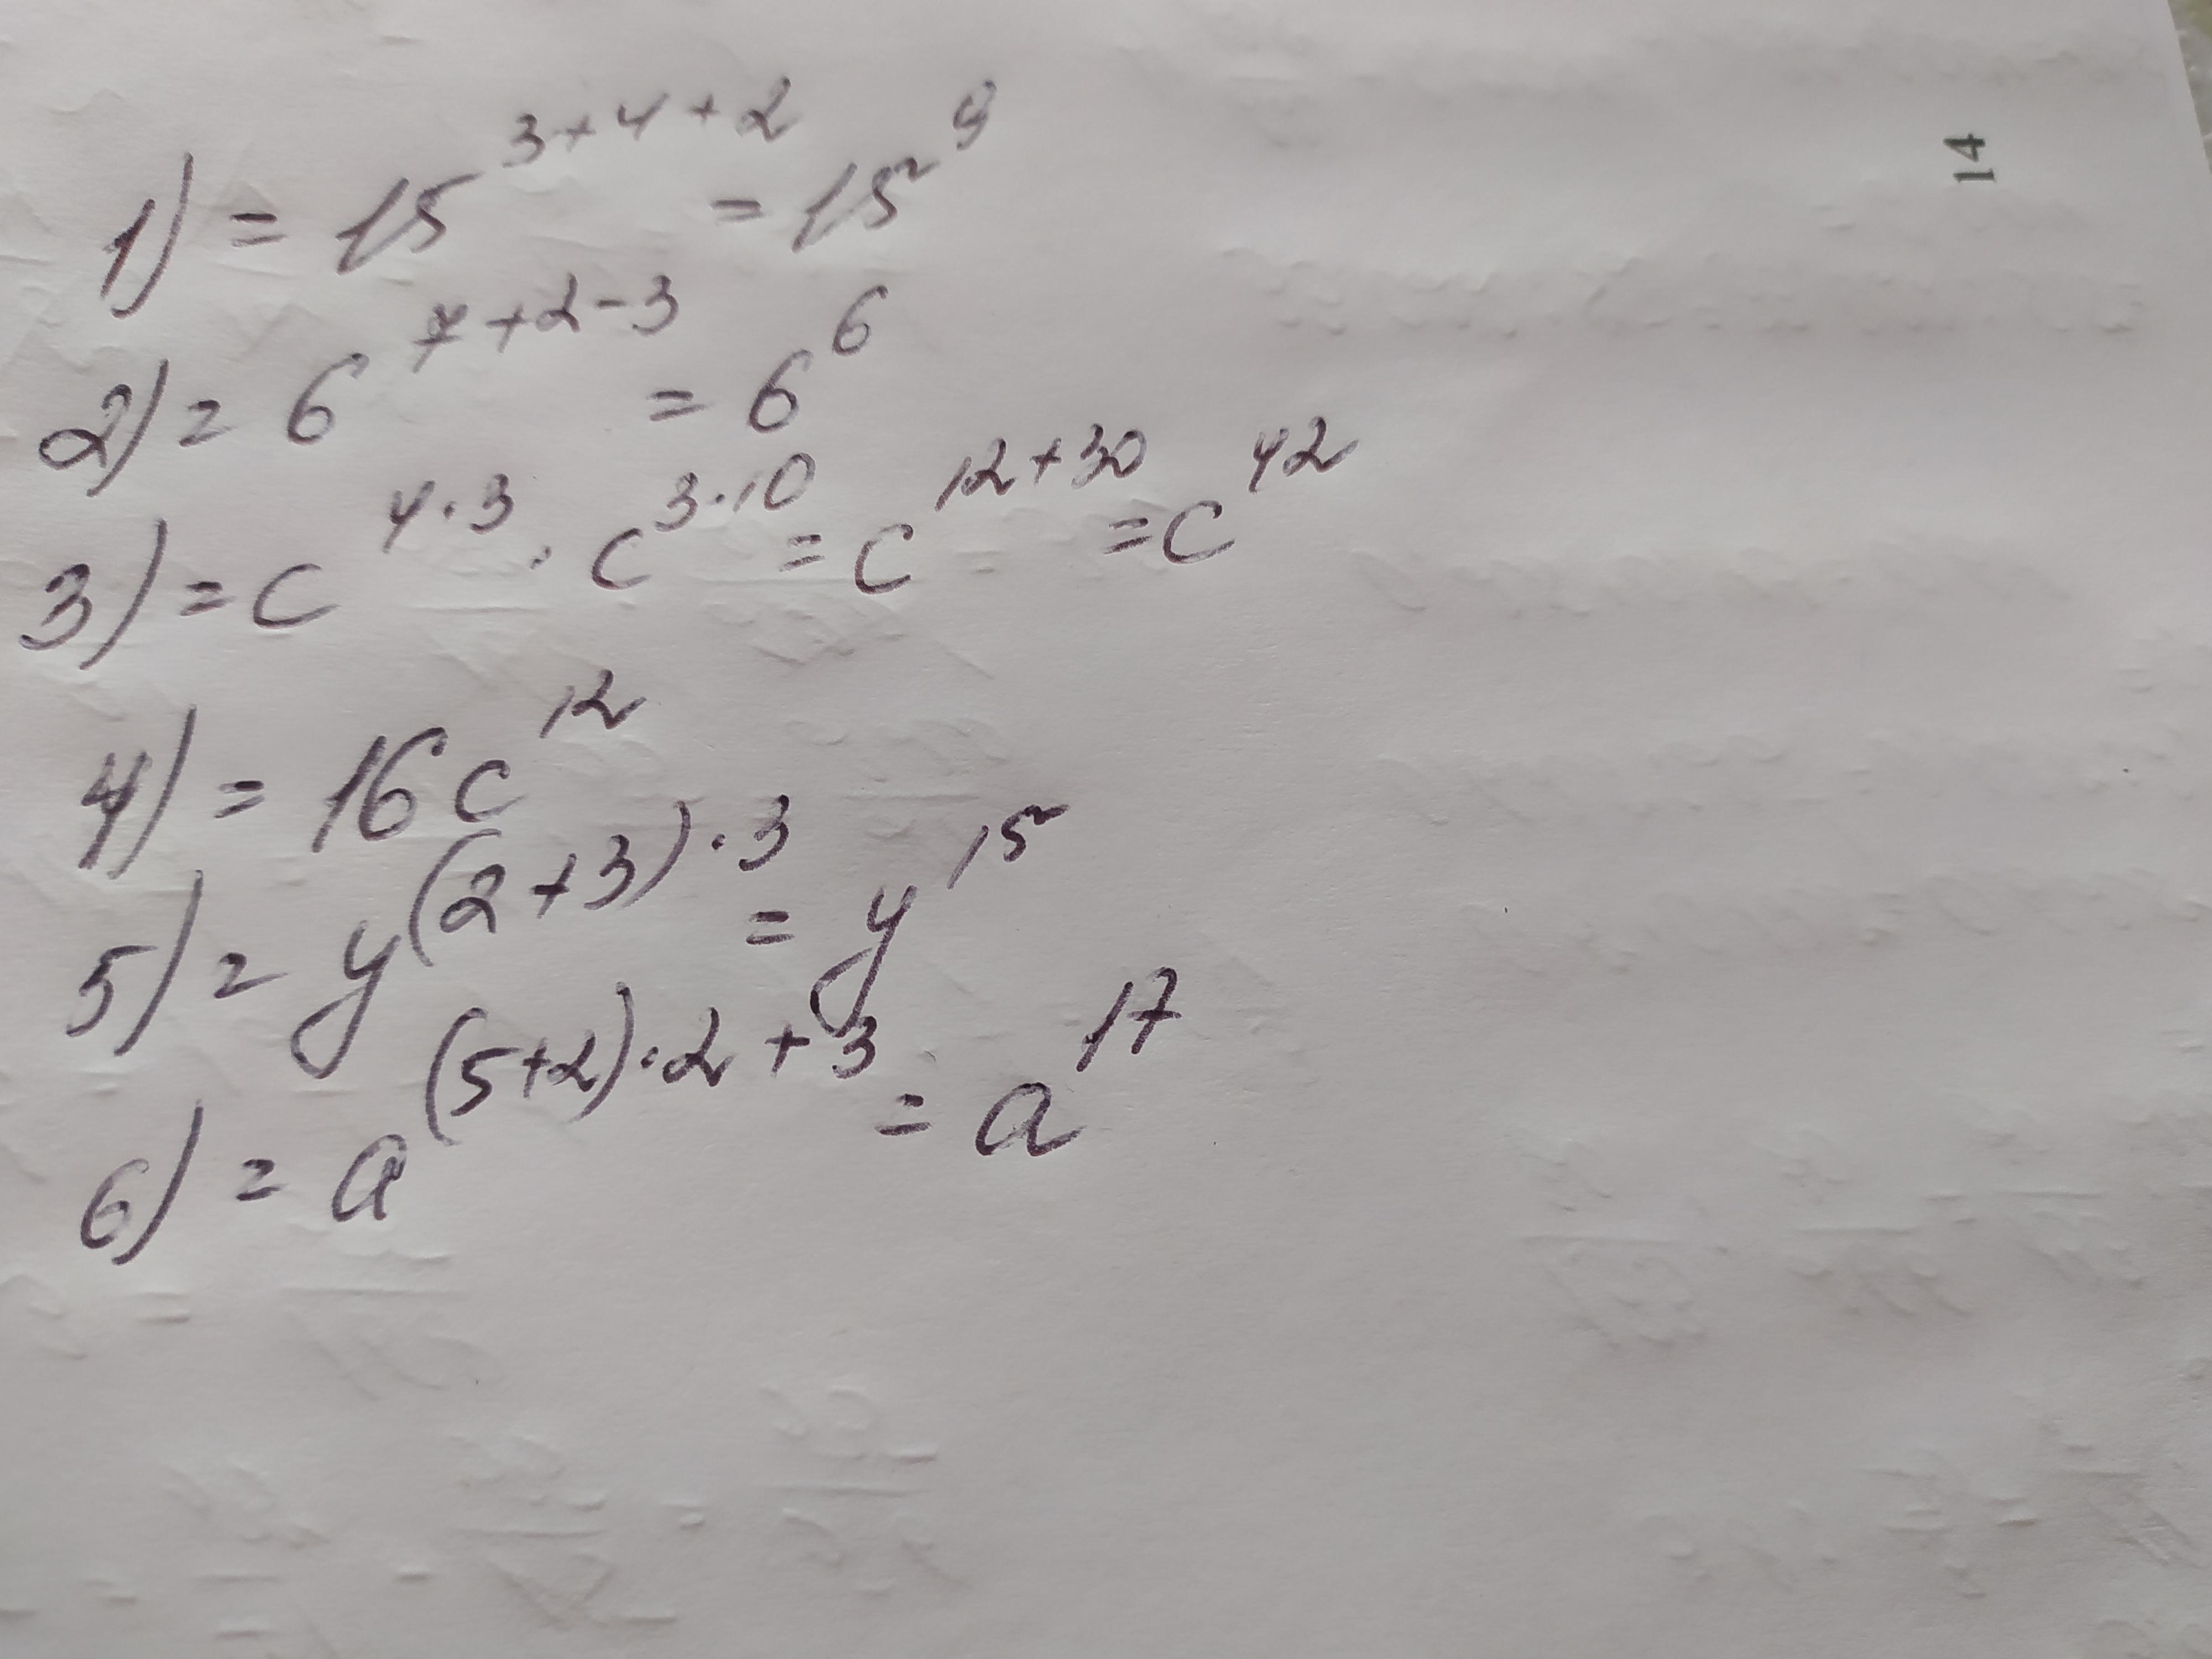 1) = 15^{3+4+2} = 15^9
2) = 6^{7+2-3} = 6^6
3) = c^{4·3} · c^{3·10} = c^{12+30} = c^{42}
4) = 16c^{12}
5) = y^{(2+3)·3} = y^{15}
6) = a^{(5+2)·2+3} = a^{17}
14